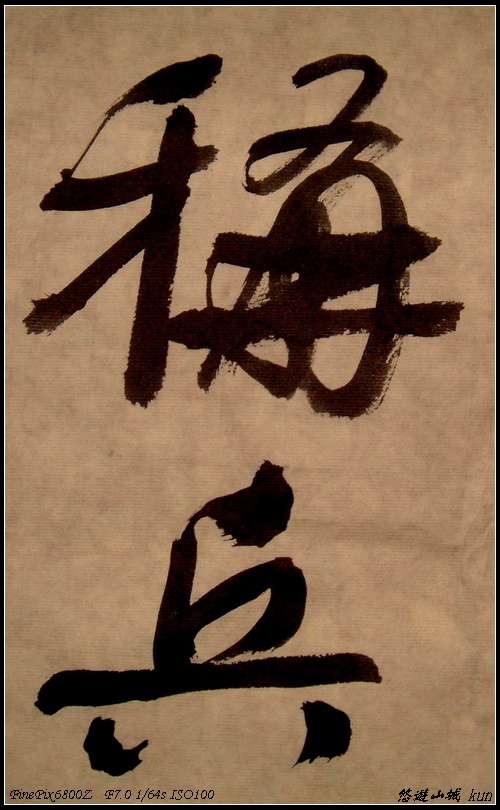 稱
兵
FinePix6800Z F7.0 1/64s ISO100
悠遊山城 kun